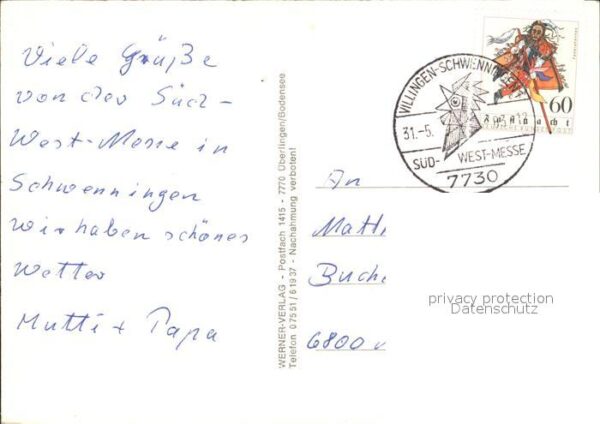 Viele Grüße
von der Süd-
West-Messe in
Schwenningen
wir haben schönes
Wetter
Mutti + Papa
WERNER-VERLAG - Postfach 1415 - 7770 Überlingen/Bodensee
Telefon 07551/61937 - Nachahmung verboten!
VILLINGEN-SCHWENNINGEN
31.-5.
SÜD- WEST-MESSE
7730
60
Fastnacht
An
Matt
Buche
6800
privacy protection
Datenschutz